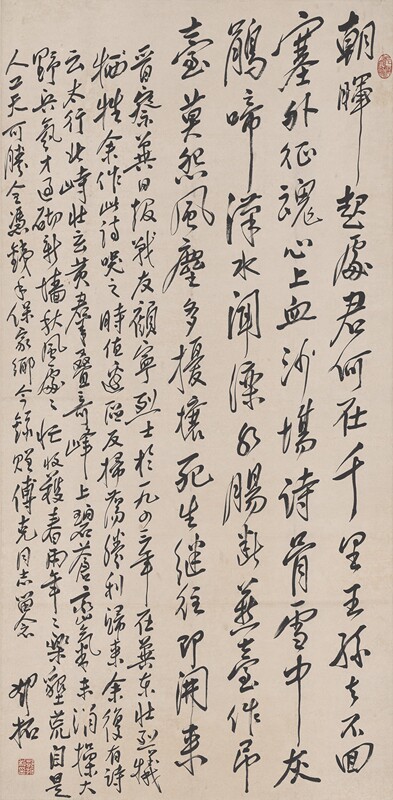 朝暉起處君何在千里王孫去不回
塞外征魂心上血沙場詩骨雪中灰
鵑啼漢水聞灤水腸斷燕臺作吊
臺莫怨風塵多擾攘死生繼往即開來
晉察冀日報戰友顧寧烈士於一九四三年在冀東壯烈犧
牲余作此詩哭之時值邊區反掃蕩勝利歸來余復有詩
云太行北峙壯云黃羣疊奇峰上碧蒼氣未消操大
野兵氛才過砌新墻秋風處々忙收穫春雨年々樂墾荒自是
人工天可勝全憑鐵手保家鄉今錄贈傅克同志留念 鄧拓